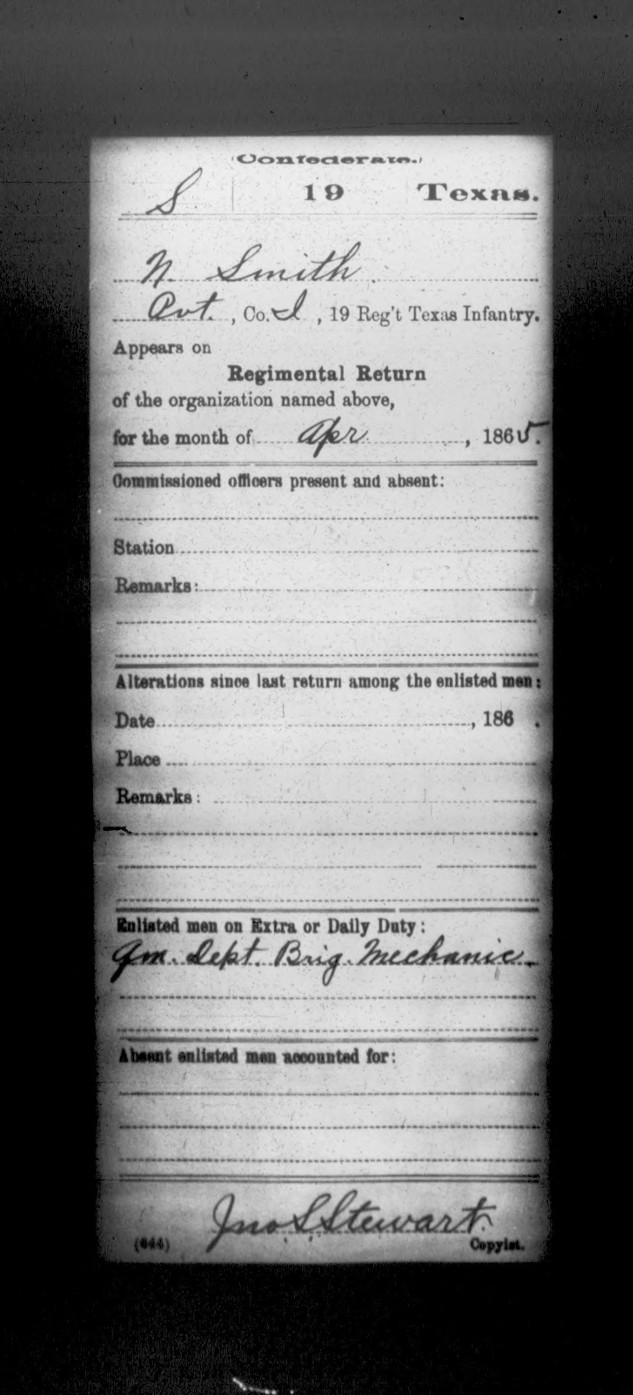 (Confederate.)
S 19 Texas.
N. Smith
Pvt., Co. I, 19 Reg't Texas Infantry.
Appears on
Regimental Return
of the organization named above,
for the month of Apr, 1865.
Commissioned officers present and absent:
Station
Remarks:
Alterations since last return among the enlisted men:
Date, 186 .
Place
Remarks:
Enlisted men on Extra or Daily Duty:
Qm. Dept. Brig. Mechanic.
Absent enlisted men accounted for:
Jno S Stewart
(644) Copyist.